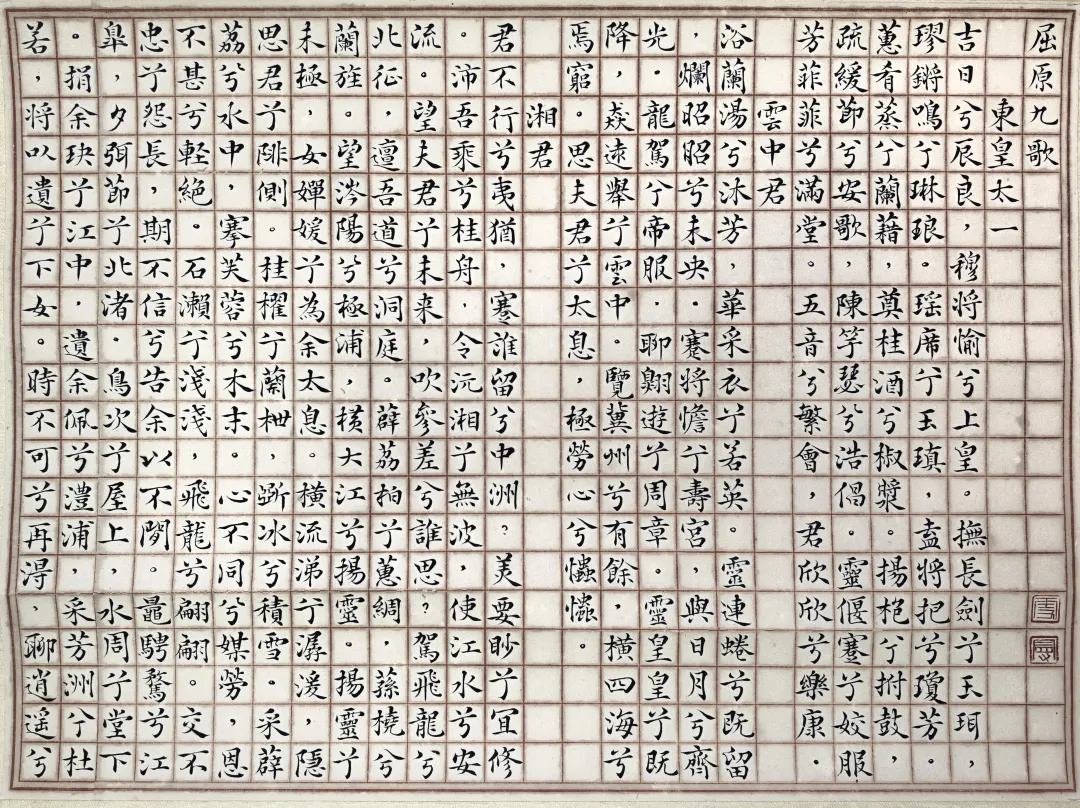 屈原九歌
東皇太一
吉日兮辰良，穆將愉兮上皇。撫長劍兮玉珥，
璆鏘鳴兮琳琅。瑶席兮玉瑱，盍將把兮瓊芳。
蕙肴蒸兮蘭藉，奠桂酒兮椒漿。揚枹兮拊鼓，
疏緩節兮安歌，陳竽瑟兮浩倡。靈偃蹇兮姣服
芳菲菲兮滿堂。五音兮繁會，君欣欣兮樂康。
雲中君
浴蘭湯兮沐芳，華采衣兮若英。靈連蜷兮既留
，爛昭昭兮未央。蹇將憺兮壽宮，與日月兮齊
光。龍駕兮帝服，聊翺遊兮周章。靈皇皇兮既
降，猋遠舉兮雲中。覽冀州兮有餘，橫四海兮
焉窮。思夫君兮太息，極勞心兮𢥞𢥞。
湘君
君不行兮夷猶，蹇誰留兮中洲？美要眇兮宜修
。沛吾乘兮桂舟，令沅湘兮無波，使江水兮安
流。望夫君兮未来，吹參差兮誰思？駕飛龍兮
北征，邅吾道兮洞庭。薜荔柏兮蕙綢，蓀橈兮
蘭旌。望涔陽兮極浦，橫大江兮揚靈。揚靈兮
未極，女嬋媛兮為余太息。橫流涕兮潺湲，隱
思君兮陫側。桂櫂兮蘭枻，斲冰兮積雪。采薜
荔兮水中，搴芙蓉兮木末。心不同兮媒勞，恩
不甚兮輕絕。石瀨兮淺淺，飛龍兮翩翩。交不
忠兮怨長，期不信兮告余以不閒。鼂騁騖兮江
皋，夕弭節兮北渚。鳥次兮屋上，水周兮堂下
。捐余玦兮江中，遺余佩兮澧浦，采芳洲兮杜
若，將以遺兮下女。時不可兮再得，聊逍遥兮